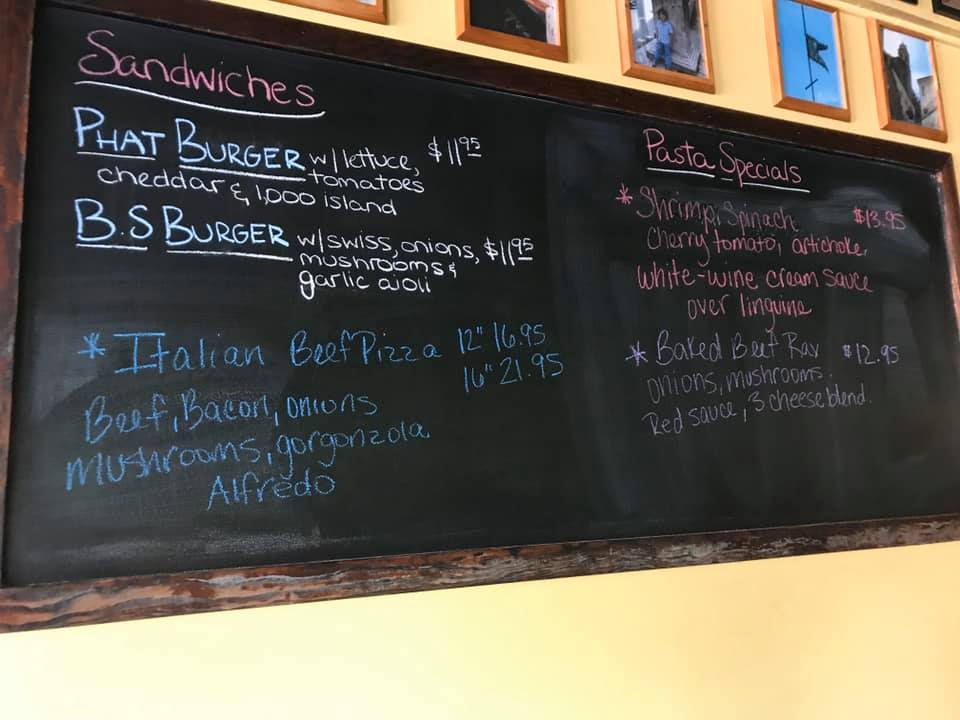 Sandwiches
PHAT BURGER w/lettuce, $11.95
tomatoes
cheddar & 1,000 island
B.S BURGER w/swiss, onions, $11.95
mushrooms &
garlic aioli
* Italian Beef Pizza 12" 16.95
16" 21.95
Beef, Bacon, onions
mushrooms, gorgonzola
Alfredo
Pasta Specials
* Shrimp, Spinach $13.95
cherry tomato, artichoke,
white-wine cream sauce
over linguine
* Baked Beef Rav $12.95
onions, mushrooms.
Red sauce, 3 cheese blend.